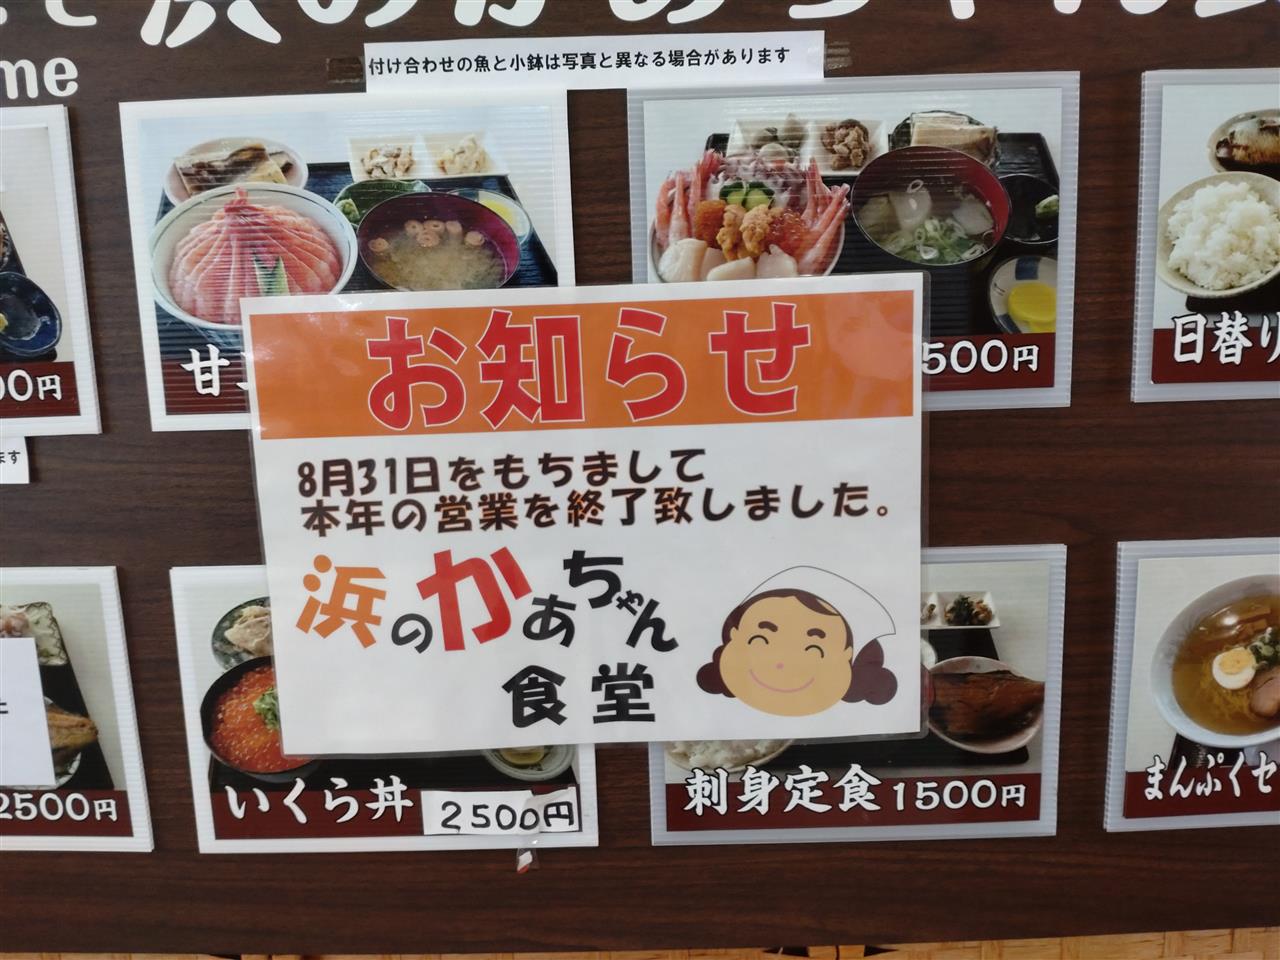 浜のかあちゃん
me
付け合わせの魚と小鉢は写真と異なる場合があります
00円
甘
500円
日替り
ます
お知らせ
8月31日をもちまして
本年の営業を終了致しました。
浜のかあちゃん
食堂
2500円
いくら丼 2500円
刺身定食 1500円
まんぷくセ